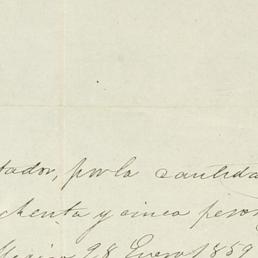 tador, por la cantida
chenta y cinco pesos
Mexico 28 Enero 1859